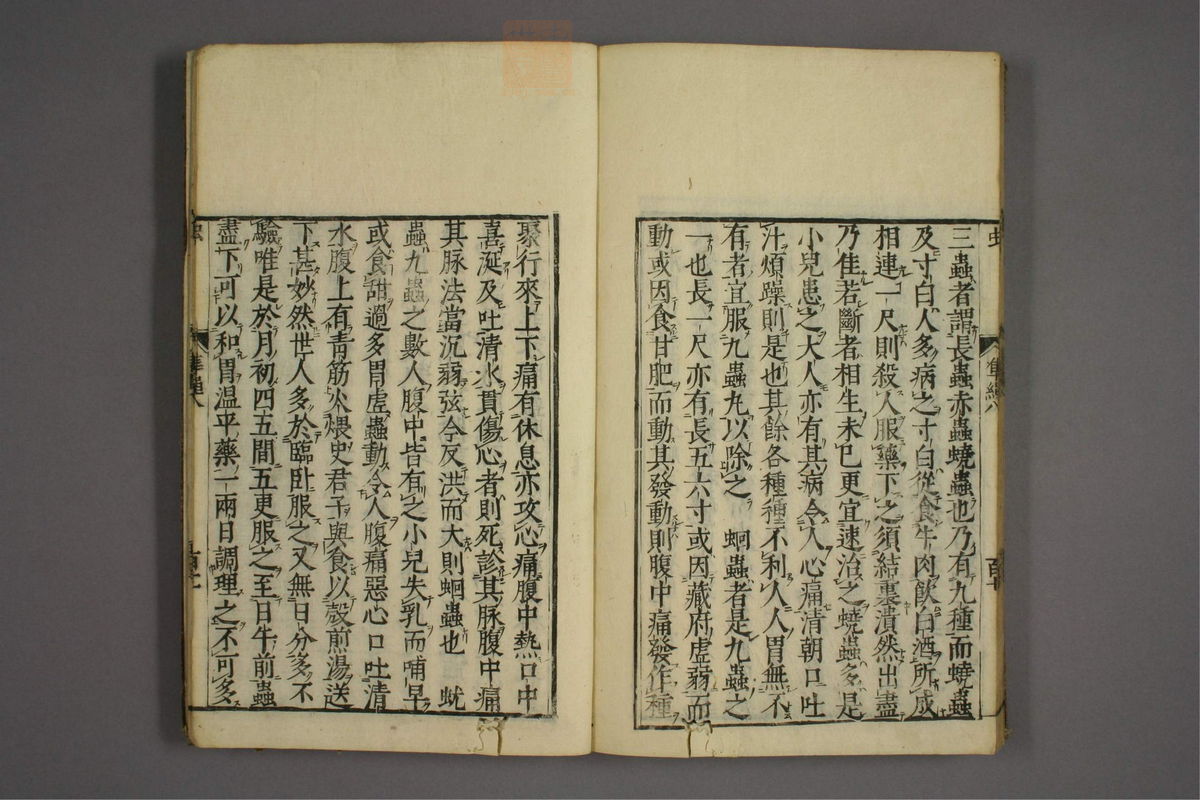 三蟲者謂長蟲赤蟲蟯蟲也乃有九種而蟯蟲
及寸白人多病之寸白從食牛肉飲白酒所成
相連一尺則殺人服藥下之須結裹潰然出盡
乃佳若斷者相生未已更宜速治之蟯蟲多是
小兒患之大人亦有其病令人心痛清朝口吐
汁煩躁則是也其餘各種種不利人人胃無不
有者宜服九蟲丸以除之　蛔蟲者是九蟲之
一也長一尺亦有長五六寸或因藏府虛弱而
動或因食甘肥而動其發動則腹中痛發作種
聚行來上下痛有休息亦攻心痛腹中熱口中
喜涎及吐清水貫傷心者則死診其脉腹中痛
其脉法當沉弱弦今反洪而大則蛔蟲也　蚘
蟲九蟲之數人腹中皆有之小兒失乳而哺早
或食甜過多胃虛蟲動令人腹痛惡心口吐清
水腹上有青筋火煨史君子與食以殼煎湯送
下甚妙然世人多於臨卧服之又無日分多不
驗唯是於月初四五間五更服之至日午前蟲
盡下可以和胃溫平藥一兩日調理之不可多